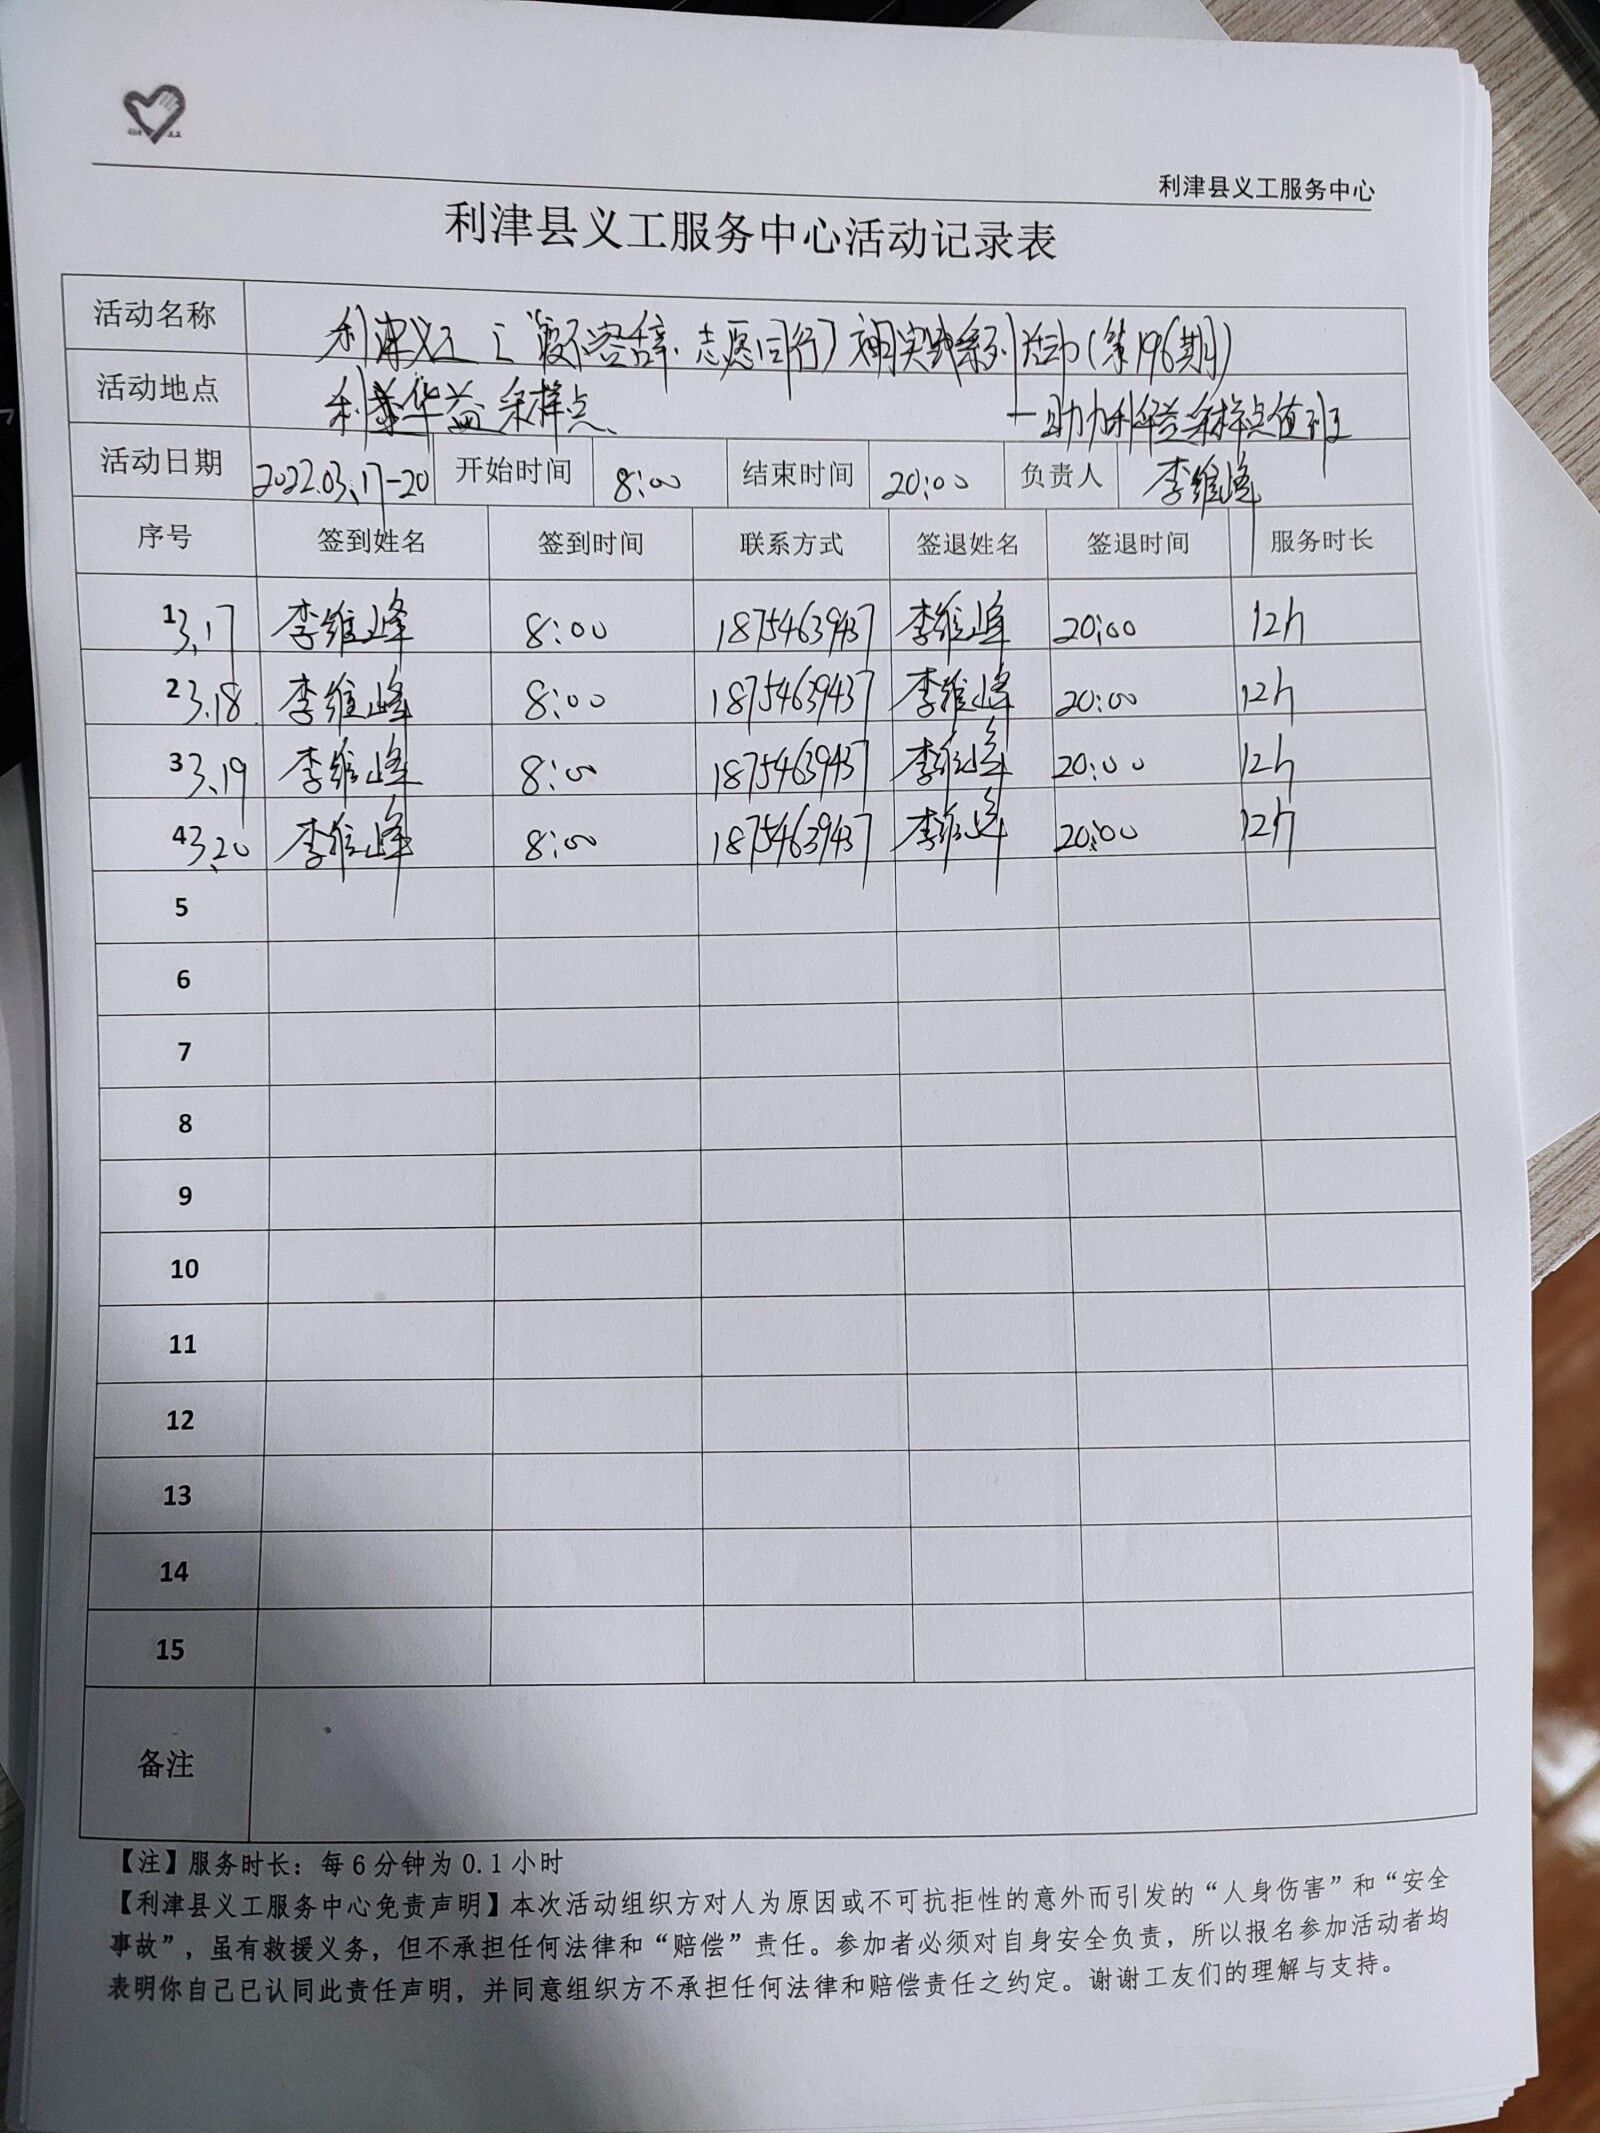 利津县义工服务中心
利津县义工服务中心活动记录表
活动名称 利津义工【"疫不容辞·志愿同行】文明实践系列活动(第196期)
活动地点 利华益采样点、 —助力利华益采样点值班
活动日期 2022.03.17-20 开始时间 8:00 结束时间 20:00 负责人 李维峰
序号 签到姓名 签到时间 联系方式 签退姓名 签退时间 服务时长
1 3.17 李维峰 8:00 18754639437 李维峰 20:00 12h
2 3.18 李维峰 8:00 18754639437 李维峰 20:00 12h
3 3.19 李维峰 8:00 18754639437 李维峰 20:00 12h
4 3.20 李维峰 8:00 18754639437 李维峰 20:00 12h
5
6
7
8
9
10
11
12
13
14
15
备注
【注】服务时长：每6分钟为0.1小时
【利津县义工服务中心免责声明】本次活动组织方对人为原因或不可抗拒性的意外而引发的“人身伤害”和“安全
事故”，虽有救援义务，但不承担任何法律和“赔偿”责任。参加者必须对自身安全负责，所以报名参加活动者均
表明你自己已认同此责任声明，并同意组织方不承担任何法律和赔偿责任之约定。谢谢工友们的理解与支持。